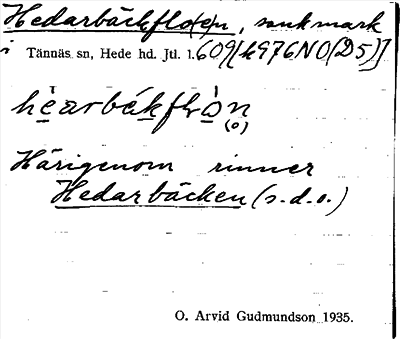 Hedarbäckflo(e)n, sankmark
i Tännäs sn, Hede hd. Jtl. l. 609[k976NO(D5)]
Härigenom rinner
Hedarbäcken (s.d.o.)
O. Arvid Gudmundson 1935.